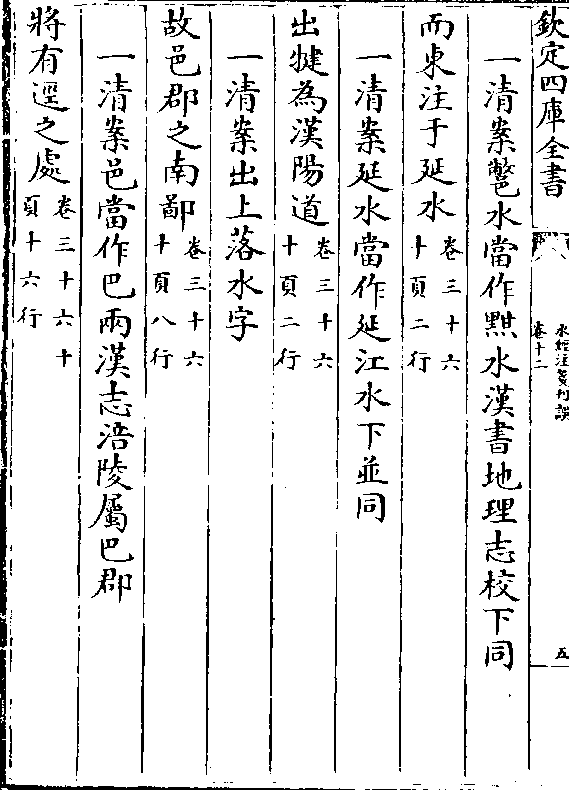 欽定四庫全書
水經注箋刊誤
卷十二
五
一清案鷩水當作黚水漢書地理志校下同
而東注于延水卷三十六
十頁二行
一清案延水當作延江水下並同
出犍為漢陽道卷三十六
十頁二行
一清案出上落水字
故邑郡之南鄙卷三十六
十頁八行
一清案邑當作巴兩漢志涪陵屬巴郡
將有逕之處卷三十六十
頁十六行